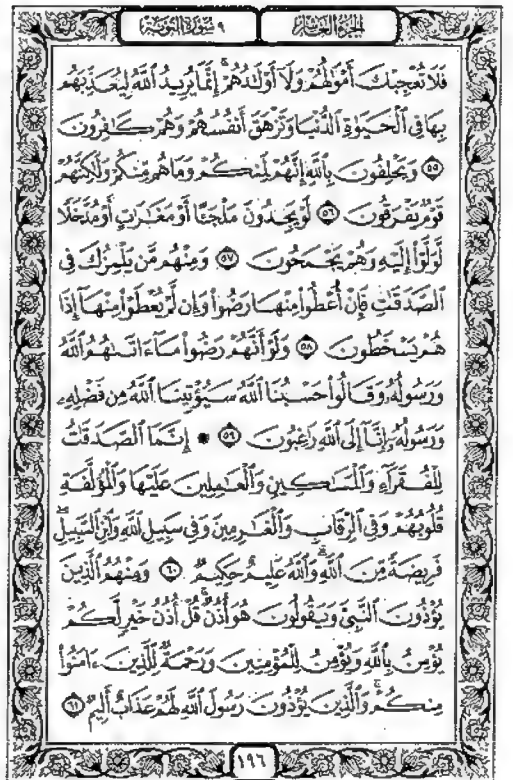 الجزء العاشر ٩ سورة التوبة
فَلَا تُعْجِبْكَ أَمْوَٰلُهُمْ وَلَآ أَوْلَٰدُهُمْ ۚ إِنَّمَا يُرِيدُ ٱللَّهُ لِيُعَذِّبَهُم
بِهَا فِى ٱلْحَيَوٰةِ ٱلدُّنْيَا وَتَزْهَقَ أَنفُسُهُمْ وَهُمْ كَٰفِرُونَ
٥٥ وَيَحْلِفُونَ بِٱللَّهِ إِنَّهُمْ لَمِنكُمْ وَمَا هُم مِّنكُمْ وَلَٰكِنَّهُمْ
قَوْمٌ يَفْرَقُونَ ٥٦ لَوْ يَجِدُونَ مَلْجَـًٔا أَوْ مَغَٰرَٰتٍ أَوْ مُدَّخَلًا
لَّوَلَّوْا۟ إِلَيْهِ وَهُمْ يَجْمَحُونَ ٥٧ وَمِنْهُم مَّن يَلْمِزُكَ فِى
ٱلصَّدَقَٰتِ فَإِنْ أُعْطُوا۟ مِنْهَا رَضُوا۟ وَإِن لَّمْ يُعْطَوْا۟ مِنْهَآ إِذَا
هُمْ يَسْخَطُونَ ٥٨ وَلَوْ أَنَّهُمْ رَضُوا۟ مَآ ءَاتَىٰهُمُ ٱللَّهُ
وَرَسُولُهُۥ وَقَالُوا۟ حَسْبُنَا ٱللَّهُ سَيُؤْتِينَا ٱللَّهُ مِن فَضْلِهِۦ
وَرَسُولُهُۥٓ إِنَّآ إِلَى ٱللَّهِ رَٰغِبُونَ ٥٩ ۞ إِنَّمَا ٱلصَّدَقَٰتُ
لِلْفُقَرَآءِ وَٱلْمَسَٰكِينِ وَٱلْعَٰمِلِينَ عَلَيْهَا وَٱلْمُؤَلَّفَةِ
قُلُوبُهُمْ وَفِى ٱلرِّقَابِ وَٱلْغَٰرِمِينَ وَفِى سَبِيلِ ٱللَّهِ وَٱبْنِ ٱلسَّبِيلِ ۖ
فَرِيضَةً مِّنَ ٱللَّهِ ۗ وَٱللَّهُ عَلِيمٌ حَكِيمٌ ٦٠ وَمِنْهُمُ ٱلَّذِينَ
يُؤْذُونَ ٱلنَّبِىَّ وَيَقُولُونَ هُوَ أُذُنٌ ۚ قُلْ أُذُنُ خَيْرٍ لَّكُمْ
يُؤْمِنُ بِٱللَّهِ وَيُؤْمِنُ لِلْمُؤْمِنِينَ وَرَحْمَةٌ لِّلَّذِينَ ءَامَنُوا۟
مِنكُمْ ۚ وَٱلَّذِينَ يُؤْذُونَ رَسُولَ ٱللَّهِ لَهُمْ عَذَابٌ أَلِيمٌ ٦١
١٩٦